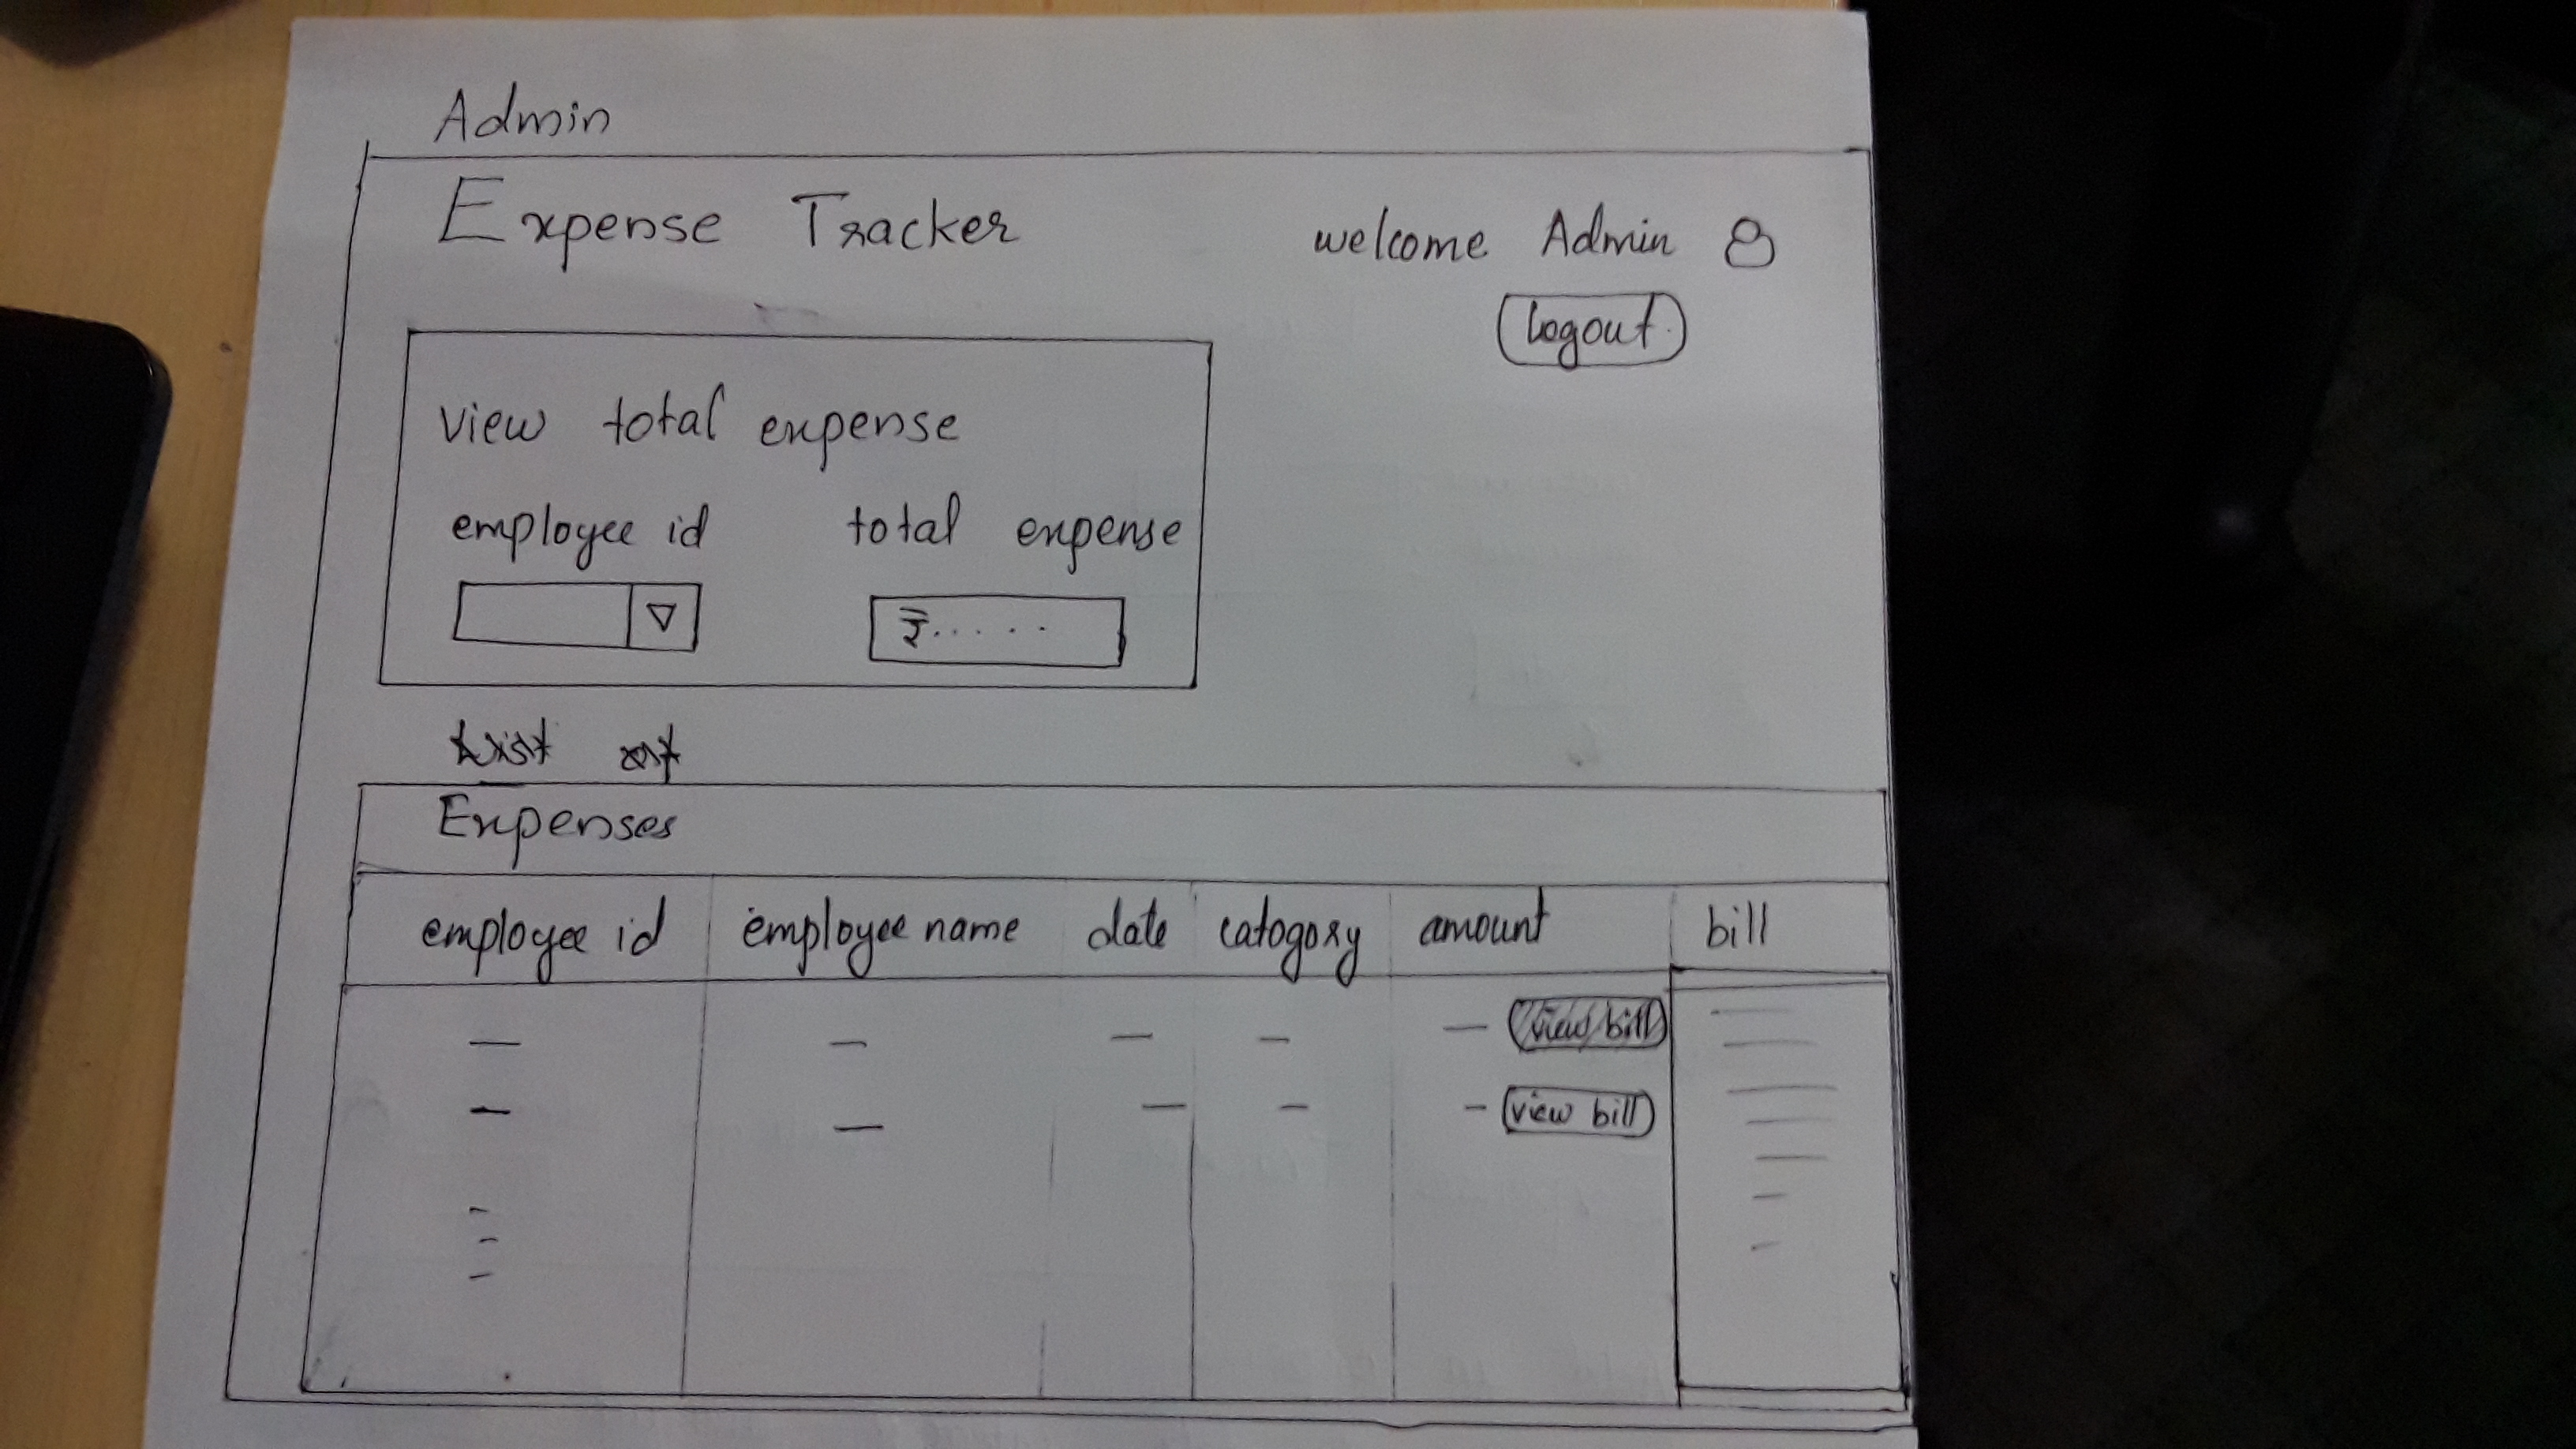 Admin
Expense Tracker
welcome Admin
Logout
view total expense
employee id total expense
₹.......
List of
Expenses
employee id employee name date catogory amount bill
view bill
view bill